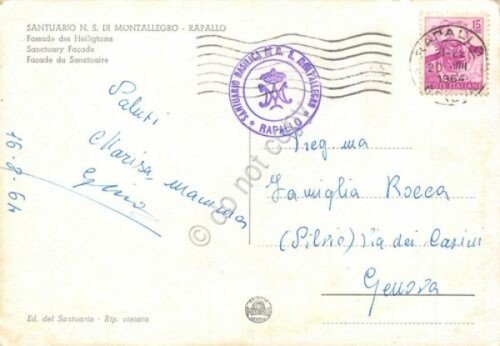 SANTUARIO N. S. DI MONTALLEGRO - RAPALLO
Fassade des Heiligtums
Sanctuary Façade
Facade du Sanctuaire
SANTUARIO BASILICA N. S. MONTALLEGRO
* RAPALLO *
RAPALLO
1964
15
POSTE ITALIANE
Saluti
Marisa, mamma
Gino
16-8-64
Preg.ma
Famiglia Rocca
(Silvio) Via dei Casini
Genova
do not copy
Ed. del Santuario - Rip. vietata